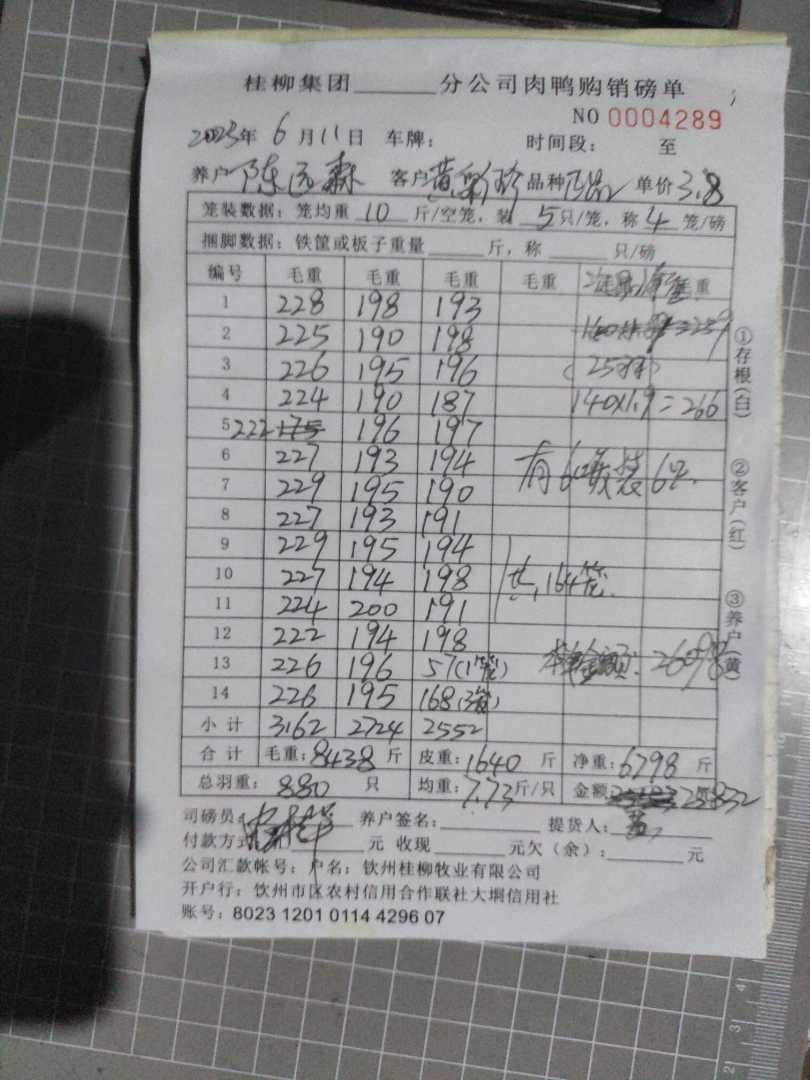 桂柳集团______分公司肉鸭购销磅单
NO 0004289
2023年 6月11日 车牌： 时间段： 至
养户 陈远森 客户 黄彩珍 品种 正品 单价 3.8
笼装数据：笼均重 10 斤/空笼，装 5只/笼，称 4 笼/磅
捆脚数据：铁筐或板子重量____斤，称____只/磅
编号 毛重 毛重 毛重 毛重 重
1 228 198 193
2 225 190 198
3 226 195 196
4 224 190 187 140×1.9=266
5 222 175 196 197
6 227 193 194 有6 装6只
7 229 195 190
8 227 193 191
9 229 195 194
10 227 194 198 共164笼
11 224 200 191
12 222 194 198
13 226 196 57(1笼) 金额：26098
14 226 195 168(3笼)
小计 3162 2724 2552
合计 毛重：8438斤 皮重：1640 斤 净重：6798 斤
总羽重：880 只 均重：7.73斤/只 金额 25832
司磅员： 养户签名： 提货人：
付款方式 元 收现____元欠（余）：____元
公司汇款帐号：户名：钦州桂柳牧业有限公司
开户行：钦州市区农村信用合作联社大垌信用社
账号：8023 1201 0114 4296 07
①存根(白) ②客户(红) ③养户(黄)